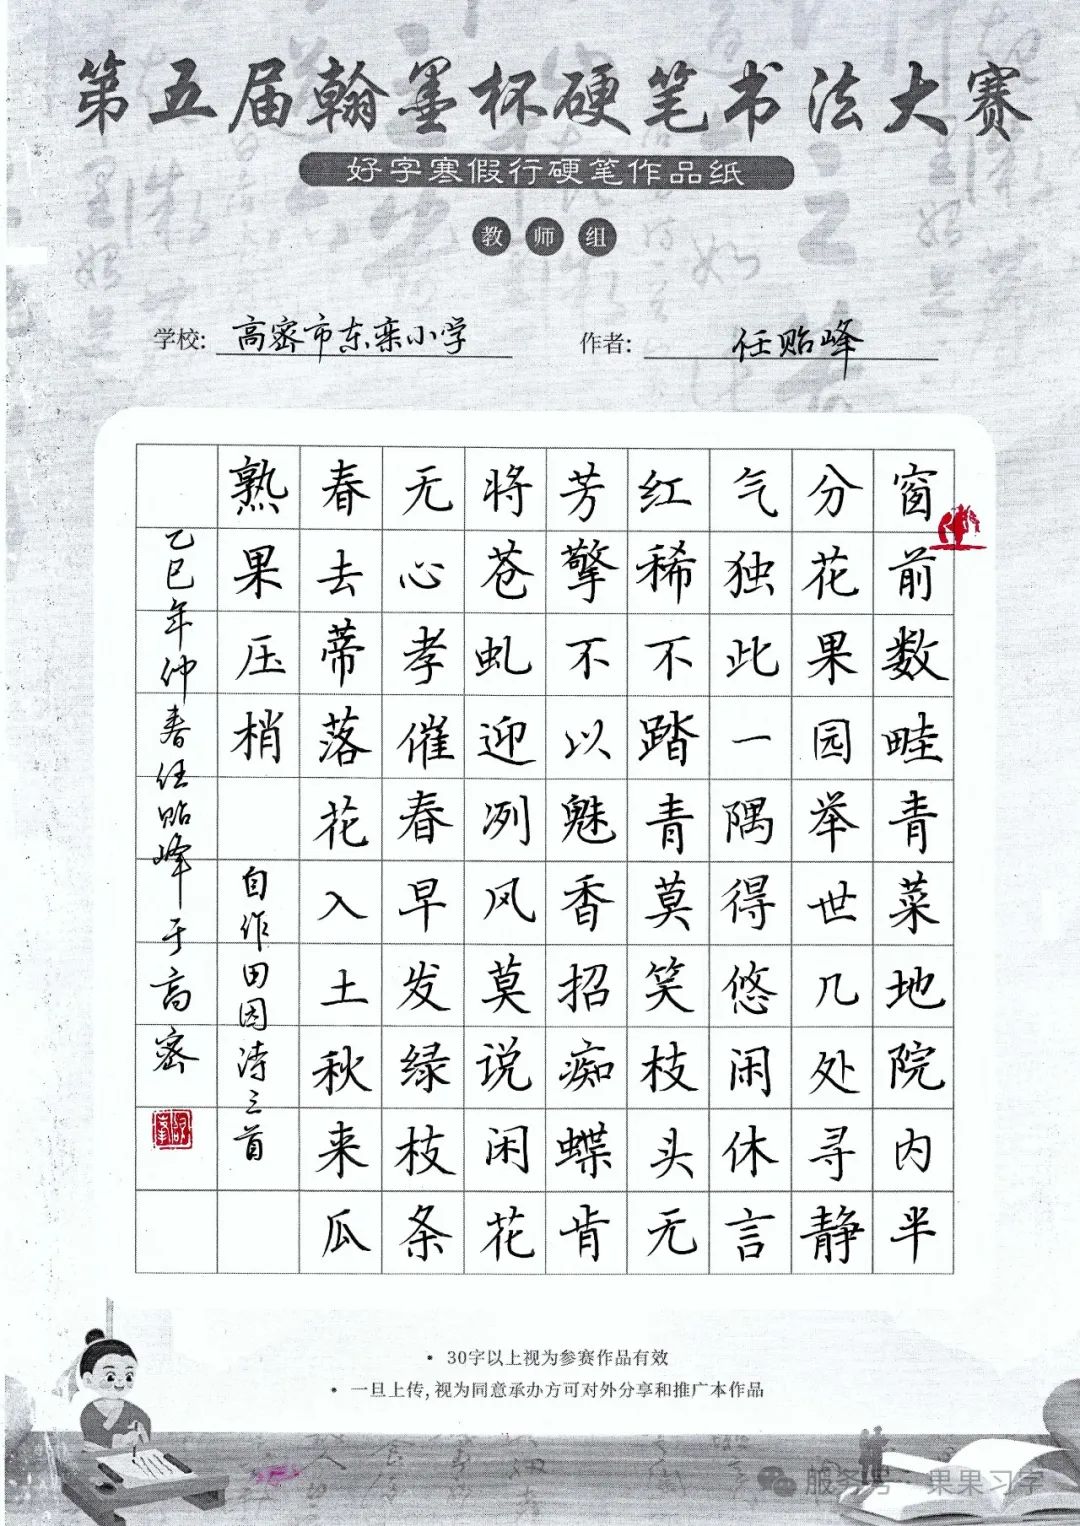 第五届翰墨杯硬笔书法大赛
好字寒假行硬笔作品纸
教师组
学校: 高密市东栾小学
作者: 任贻峰
窗前数畦青菜地院内半
分花果园举世几处寻静
气独此一隅得悠闲休言
红稀不踏青莫笑枝头无
芳擎不以魅香招痴蝶肯
将苍虬迎冽风莫说闲花
无心孝催春早发绿枝条
春去蒂落花入土秋来瓜
熟果压梢 自作田园诗三首
乙巳年仲春任贻峰于高密
• 30字以上视为参赛作品有效
• 一旦上传,视为同意承办方可对外分享和推广本作品
服务号 · 果果习字